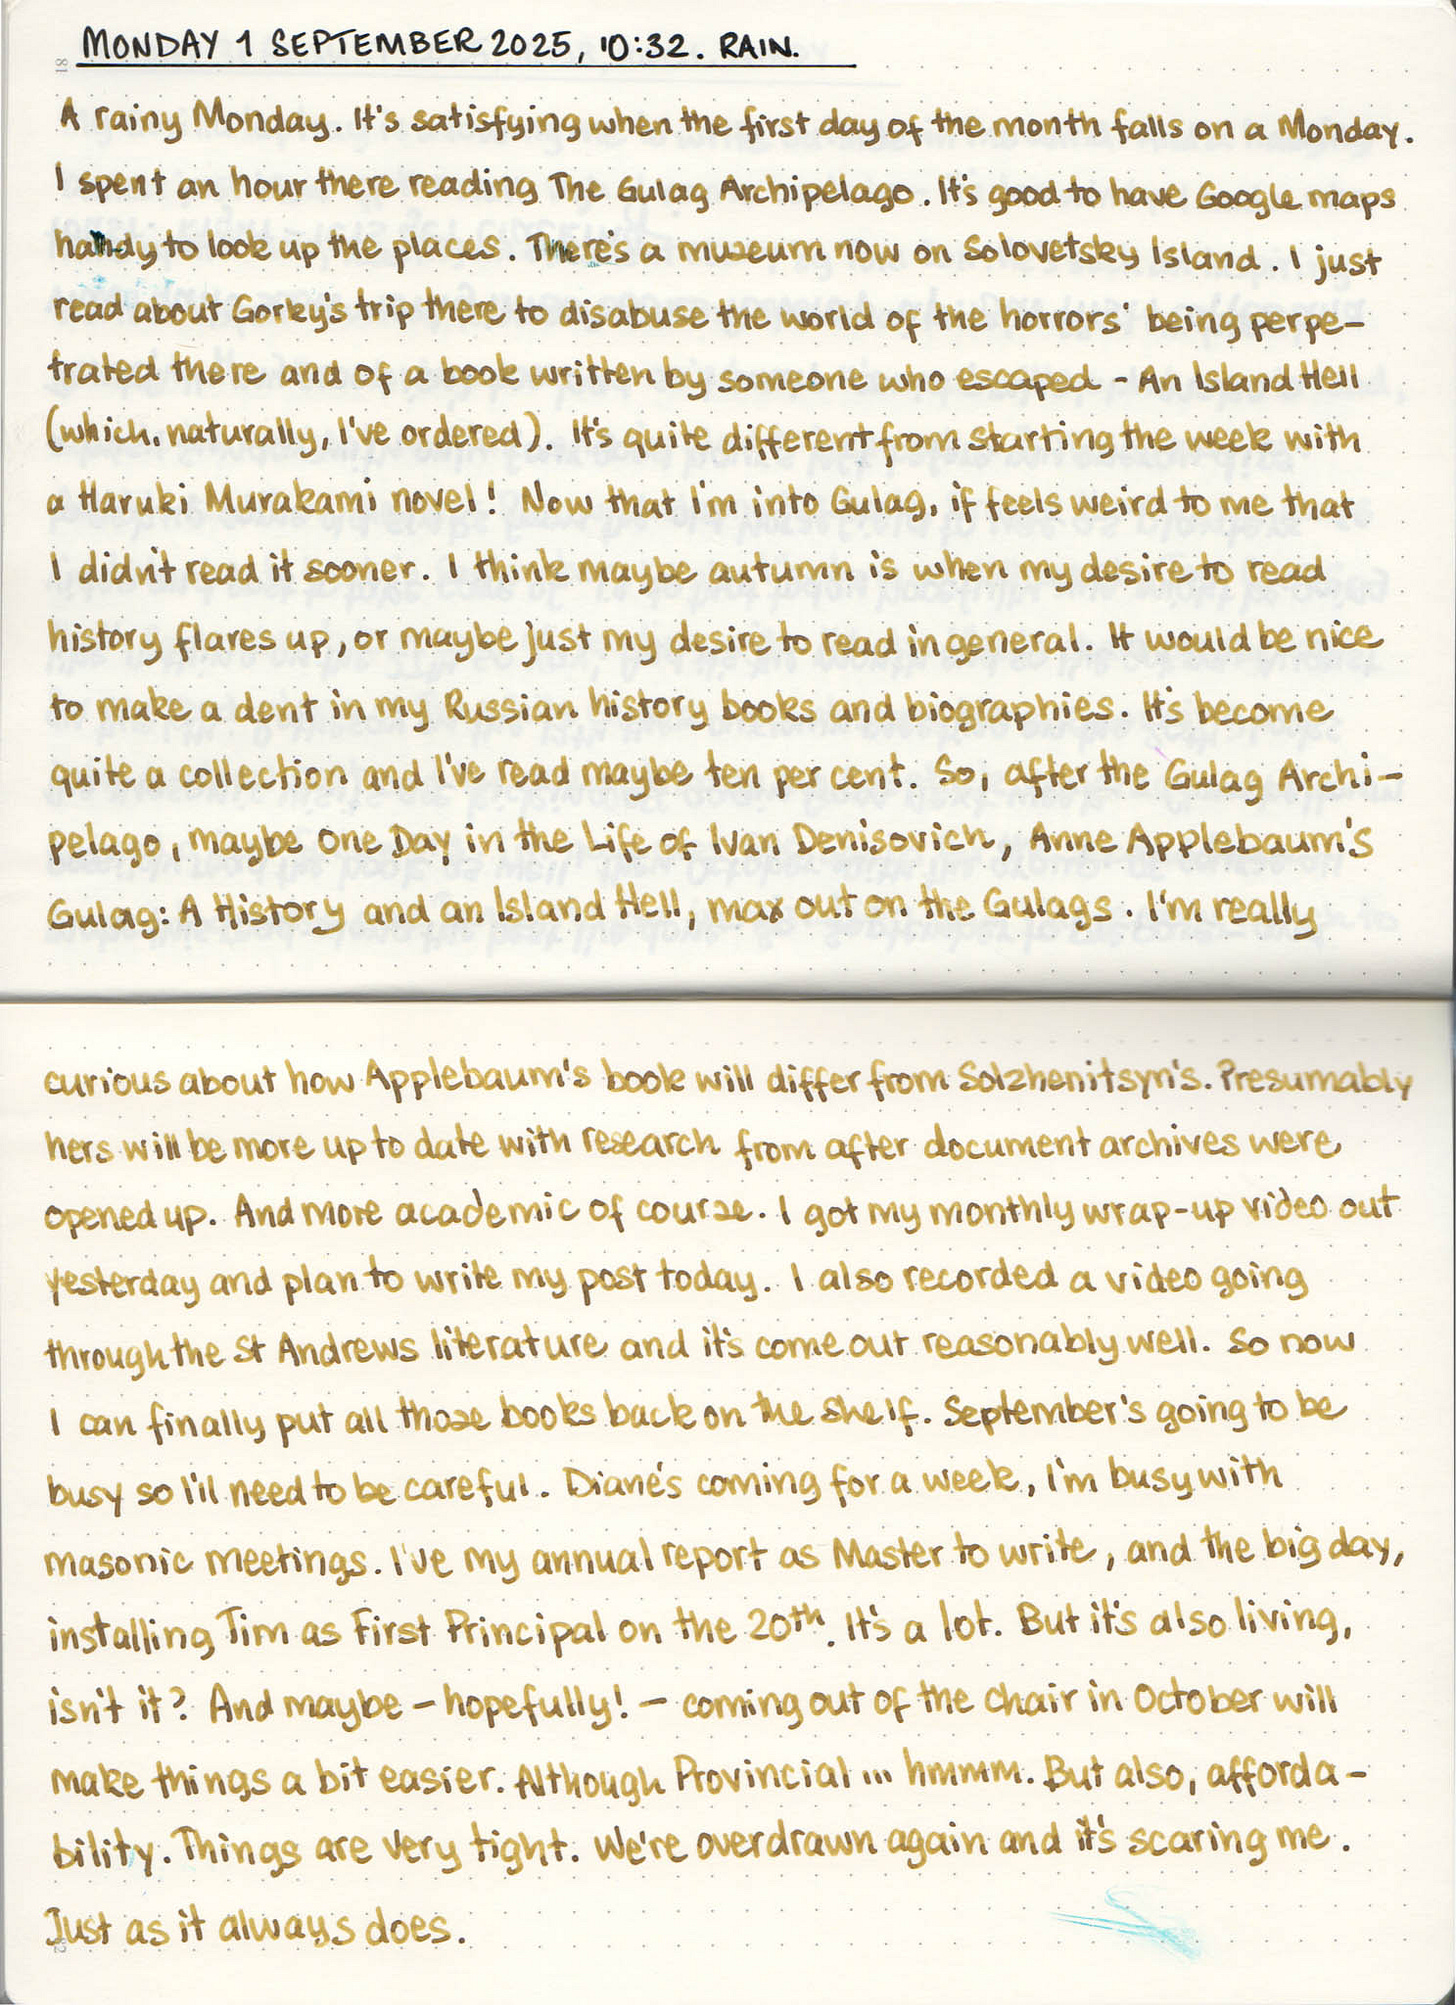 MONDAY 1 SEPTEMBER 2025, 10:32. RAIN.
81
A rainy Monday. It's satisfying when the first day of the month falls on a Monday.
I spent an hour there reading The Gulag Archipelago. It's good to have Google maps
handy to look up the places. There's a museum now on Solovetsky Island. I just
read about Gorky's trip there to disabuse the world of the horrors' being perpe-
trated there and of a book written by someone who escaped - An Island Hell
(which, naturally, I've ordered). It's quite different from starting the week with
a Haruki Murakami novel! Now that I'm into Gulag, if feels weird to me that
I didn't read it sooner. I think maybe autumn is when my desire to read
history flares up, or maybe just my desire to read in general. It would be nice
to make a dent in my Russian history books and biographies. It's become
quite a collection and I've read maybe ten per cent. So, after the Gulag Archi-
pelago, maybe One Day in the Life of Ivan Denisovich, Anne Applebaum's
Gulag: A History and an Island Hell, max out on the Gulags. I'm really
curious about how Applebaum's book will differ from Solzhenitsyn's. Presumably
hers will be more up to date with research from after document archives were
opened up. And more academic of course. I got my monthly wrap-up video out
yesterday and plan to write my post today. I also recorded a video going
through the St Andrews literature and it's come out reasonably well. So now
I can finally put all those books back on the shelf. September's going to be
busy so I'll need to be careful. Diane's coming for a week, I'm busy with
masonic meetings. I've my annual report as Master to write, and the big day,
installing Tim as First Principal on the 20th. It's a lot. But it's also living,
isn't it? And maybe - hopefully! - coming out of the Chair in October will
make things a bit easier. Although Provincial ... hmmm. But also, afforda-
bility. Things are very tight. We're overdrawn again and it's scaring me.
Just as it always does.
82